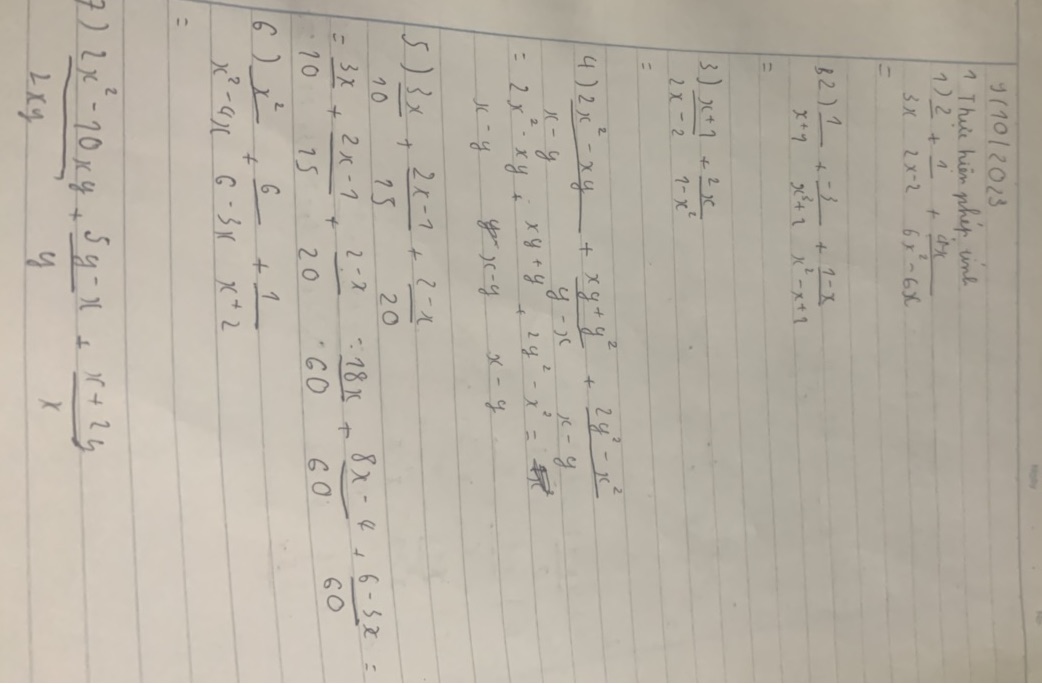 4/10/2023
1 Thực hiện phép tính
1) 2/3x + 1/2x-2 + /6x²-6x
=
2) 1/x+1 + -3/x³+1 + 1-x/x²-x+1
=
3) x+1/2x-2 + 2x/1-x²
=
4) 2x²-xy/x-y + xy+y²/y-x + 2y²-x²/x-y
= 2x²-xy/x-y + xy+y/x-y + 2y²-x²/x-y =
5) 3x/10 + 2x-1/15 + 2-x/20
= 3x/10 + 2x-1/15 + 2-x/20 = 18x/60 + 8x-4/60 + 6-3x/60 =
6) x²/x²-4x + 6/6-3x + 1/x+2
=
7) 2x²-10xy/2xy + 5y-x/y + x+2y/x